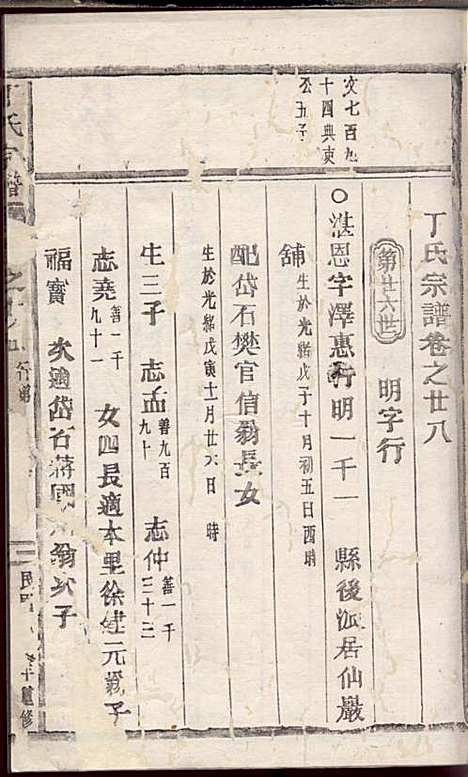 丁氏宗譜卷之廿八
第廿六世
明字行
文七百九
十四典吏
公五子
○湛恩字澤惠行明一千一 縣後派居仙巖
舖 生於光緒戊子十月初五日酉時
配岱石樊官信翁長女
生於光緒戊寅十一月廿六日 時
生三子 志孟 善九百九十 志仲 善一千三十三
志堯 善一千九十一 女四長適本里徐建元翁子
福寶 次適岱石蔣國 翁次子
丁氏宗譜
之廿 行第
民 重修